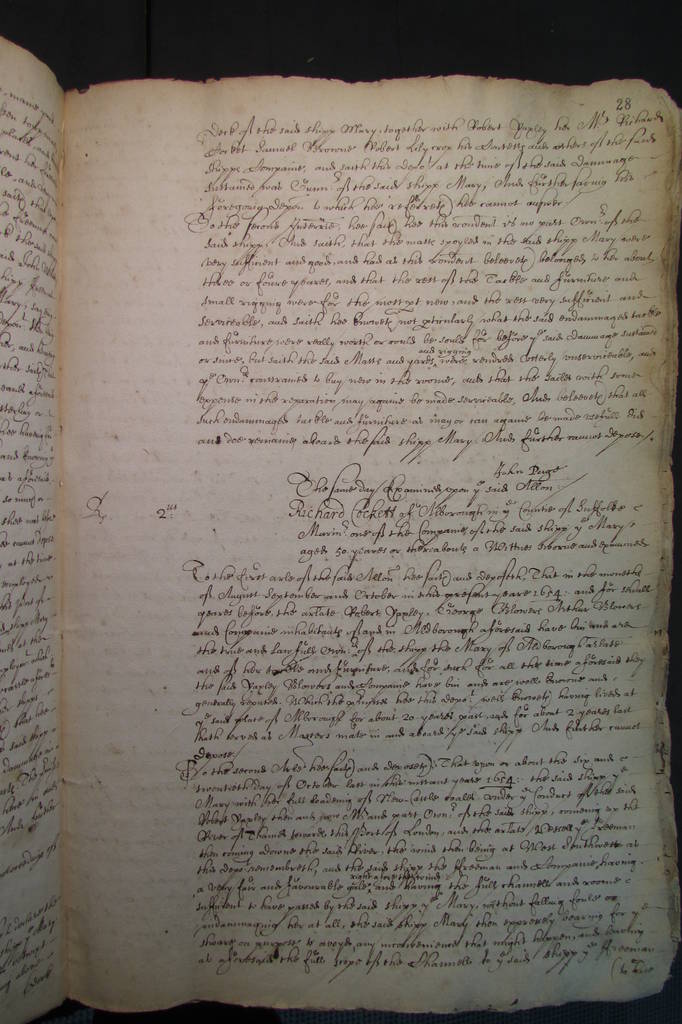 28
Deck of the said shipp Mary, together with Robert Yaxley her Mr Richard
Cocket Samuel Browne Robert Lily crop his Contests and others of the said
shipps Companie, and saith this depot at the time of the said Dammage
sustained was of the said shipp Mary, And further saving his
foregoeing depon to which hee referreth hee cannot answer
To the second Interrie, hee saith hee this rendent is no part Owner of the
said shipp, And saith, that the masts spoyled in the said shipp Mary were
very sufficient and good, and had as this rondent beleeveth belonged to her about
three or foure yeares, and that the rest of the Tackle and furniture and
small rigging were for the most pt new, and the rest very sufficient and
serviceable, and saith hee knoweth not pticularly what the said endammaged tackle
and furniture were really worth or could be sould for before ye said Dammage sustained
or since, but saith the said Masts and yards and rigging were rendred utterly unserviceable, and
ye Ownrs constrained to buy new in the roome, and that the sailes with some
expence in the reparation may againe be made serviceable, And beleeveth that all
such endammaged tackle and furniture as may or can againe be made usefull did
and doe remaine aboard the said shipp Mary. And further cannot depose/.
John Page
The same day Examined upon ye said Allon:
2us
Richard Cockett of Alborough in ye Countie of Suffolke
Marinr one of the Companie of the said shipp ye Mary
aged 50 yeares or thereabouts a Wittnes sworne and examined
To the first arle of the said Allon hee saith and deposeth, That in the moneths
of August September and October in this present yeare 1654: and for severall
yeares before, the arlate Robert Yaxley, George Blowers Arthur Blowers
and Companie inhabitants of and in Aldborough aforesaid have bin and are
the true and lawfull Ownrs of the shipp the Mary of Aldborough arlate
and of her tackle and furniture, And for such for all the time aforesaid they
the said Yaxley Blowers and Companie have bin and are well knowne and
generally reputed. Which the hee this depot well knoweth having lived at
ye said place of Alborough for about 20 yeares past, and for about 2 yeares last
hath served as Masters mate in and aboard ye said shipp And further cannot
depose
To the second Arle hee saith and deposeth, That upon or about the six and
twentieth day of October last in this instant yeare 1654: the said shipp ye
Mary with her full loadeing of New Castle coales under ye Conduct of the said
Robert Yaxley then and now Mr and part Ownr of the said shipp, comeing up the
River of Thames towards this Port of London, and the arlate Vessell ye Freeman
then coming downe the said River, the wind then being at West Southwest as
this depot remembreth, and the said shipp the Freeman and Companie, having
a very fair and favourable gale right after the wind, and having the full channell and roome
sufficient to have passed by the said shipp ye Mary, without falling foule or
endammaging her at all, the said shipp Mary then expresly bearing for ye
shoare on purpose to avoyd any inconvenience that might happen, and leaving
as aforesaid the full scope of the Channell to ye said shipp ye Freeman